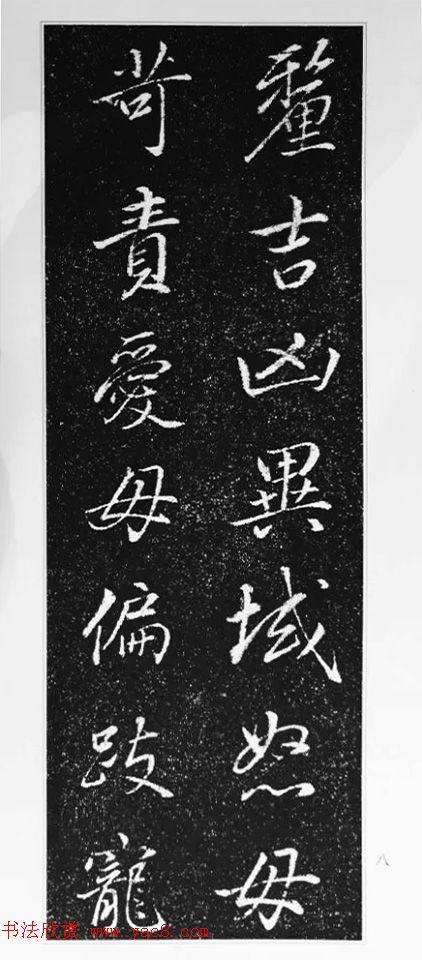 釐吉凶異域怒毋
苛責愛毋偏跂寵
八
书法欣赏 www.yac8.com